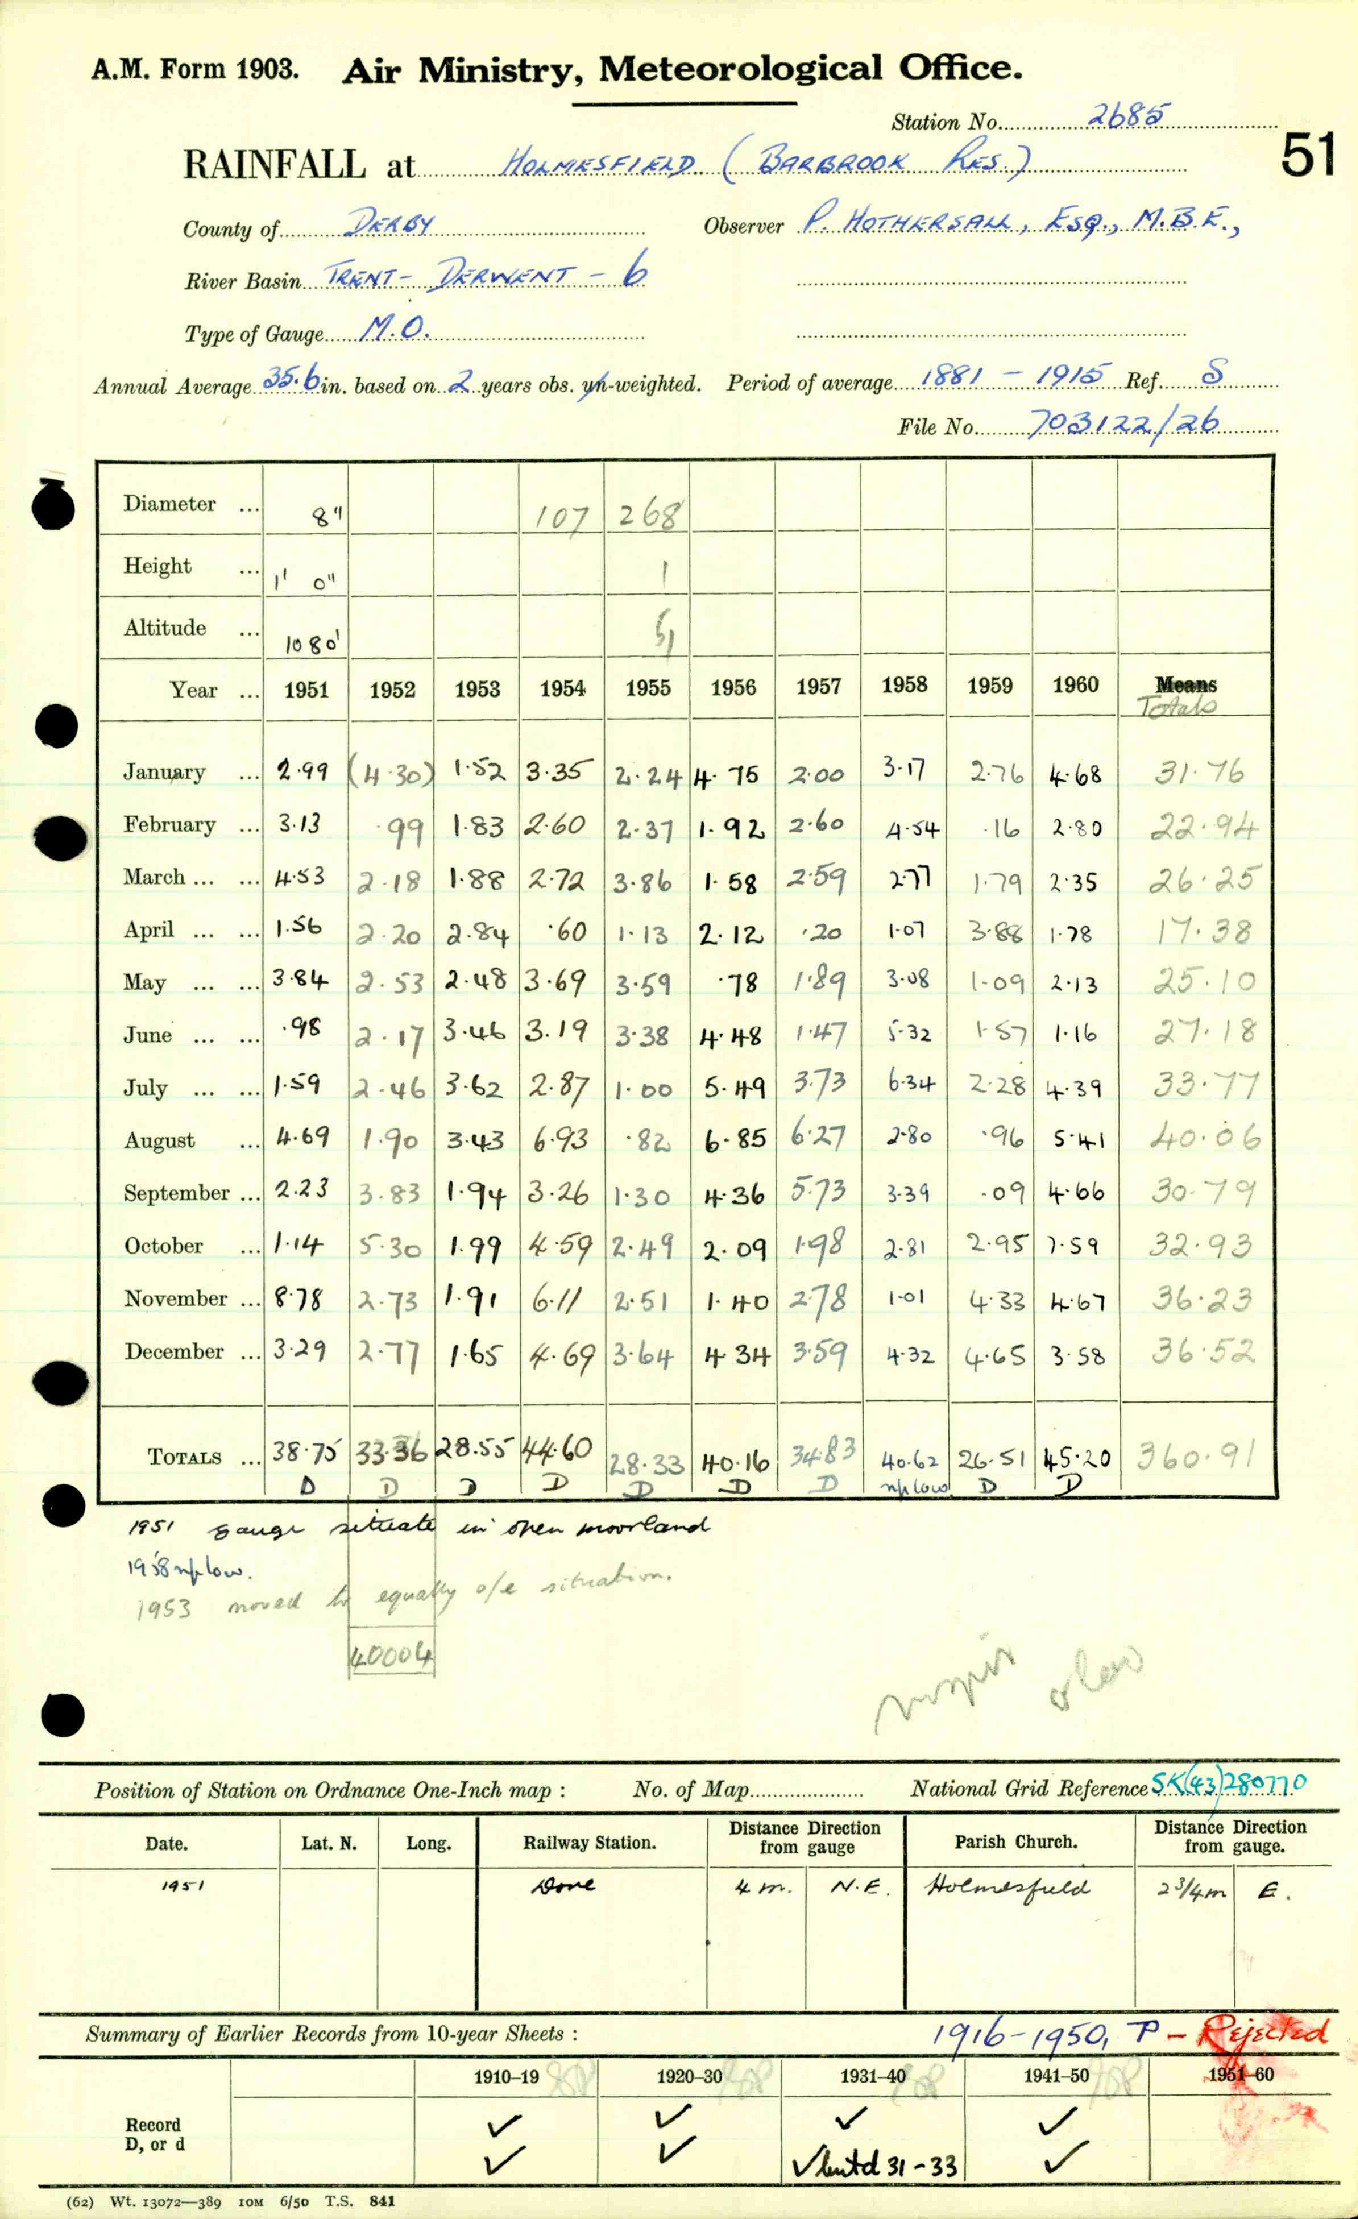 A.M. Form 1903. Air Ministry, Meteorological Office.
Station No. 2685
51
RAINFALL at HOLMESFIELD (BARBROOK RES.)
County of DERBY Observer P. HOTHERSALL, ESQ., M.B.E.,
River Basin TRENT - DERWENT - 6
Type of Gauge M.O.
Annual Average 35.6 in. based on 2 years obs. un-weighted. Period of average 1881 - 1915 Ref. S
File No. 703122/26
Diameter ... 8" 107 268
Height ... 1' 0" 1
Altitude ... 1080' 51
Year ... 1951 1952 1953 1954 1955 1956 1957 1958 1959 1960 Means
Totals
January ... 2.99 (4.30) 1.52 3.35 2.24 4.75 2.00 3.17 2.76 4.68 31.76
February ... 3.13 .99 1.83 2.60 2.37 1.92 2.60 4.54 .16 2.80 22.94
March ... ... 4.53 2.18 1.88 2.72 3.86 1.58 2.59 2.77 1.79 2.35 26.25
April ... ... 1.56 2.20 2.84 .60 1.13 2.12 .20 1.07 3.88 1.78 17.38
May ... ... 3.84 2.53 2.48 3.69 3.59 .78 1.89 3.08 1.09 2.13 25.10
June ... ... .98 2.17 3.46 3.19 3.38 4.48 1.47 5.32 1.57 1.16 27.18
July ... ... 1.59 2.46 3.62 2.87 1.00 5.49 3.73 6.34 2.28 4.39 33.77
August ... 4.69 1.90 3.43 6.93 .82 6.85 6.27 2.80 .96 5.41 40.06
September ... 2.23 3.83 1.94 3.26 1.30 4.36 5.73 3.39 .09 4.66 30.79
October ... 1.14 5.30 1.99 4.59 2.49 2.09 1.98 2.81 2.95 7.59 32.93
November ... 8.78 2.73 1.91 6.11 2.51 1.40 2.78 1.01 4.33 4.67 36.23
December ... 3.29 2.77 1.65 4.69 3.64 4 34 3.59 4.32 4.65 3.58 36.52
TOTALS ... 38.75 33.36 28.55 44.60 28.33 40.16 34.83 40.62 26.51 45.20 360.91
D D D D D D D D D
1951 gauge situate in open moorland
1958
1953 moved to equally o/e situation.
40004
Position of Station on Ordnance One-Inch map : No. of Map National Grid Reference SK(43)280770
Date. Lat. N. Long. Railway Station. Distance Direction from gauge Parish Church. Distance Direction from gauge.
1951 Dore 4 m. N.E. Holmesfield 2 3/4 m E.
Summary of Earlier Records from 10-year Sheets : 1916-1950, P - Rejected
1910–19 1920–30 1931–40 1941–50 1951–60
Record ✓ ✓ ✓ ✓
D, or d ✓ ✓ ✓ but d 31-33 ✓
(62) Wt. 13072—389 10M 6/50 T.S. 841